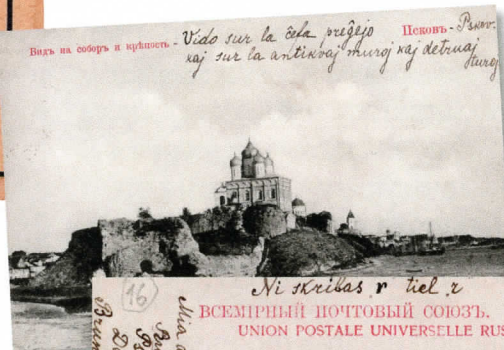 Видъ на соборъ и крѣпость - Vido sur la ĉefa preĝejo Псковъ - Pskov.
kaj sur la antikvaj muroj kaj detruaj
turoj
16
Ni skribas r tiel r
ВСЕМІРНЫЙ ПОЧТОВЫЙ СОЮЗЪ.
UNION POSTALE UNIVERSELLE RUS
Mia